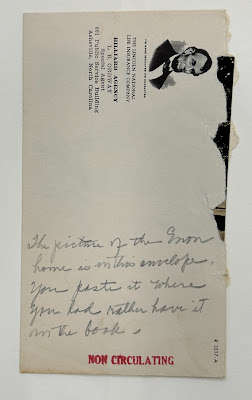 THE LINCOLN NATIONAL
LIFE INSURANCE COMPANY
HILLIARD AGENCY
L. B. ORDWAY
Special Agent
401 Public Service Building
Asheville, North Carolina
The picture of the Enon
home is in this envelope.
You paste it where
you had rather have it
in the book.
NON CIRCULATING